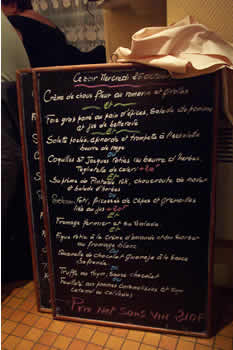 Ce soir Mercredi 25 octobre
Crème de choux fleur au romarin et girolles
et
Foie gras poné au pain d'épices, Salade de pommes
et jus de betterave
et
Sole, épinards et trompette à l'échalote
beurre rouge
Coquilles St Jacques rôties au beurre d'herbes,
Tagliatelle de céleri
et
Suprême de Pintade rôti, choucroute de navet
et salade d'herbes
rôti, fricassée de Cèpes et grenailles
lié au jus
et
Fromage fermier et sa Salade
et
Figue rôtie à la Crème d'amande et son Sorbet
au fromage blanc
ou
de chocolat Guanaja à la Sauce
Safranée
ou
Truffé au thym, Sauce chocolat
ou
Feuilleté aux pommes Caramélisées et Son
Caramel au calvados
Prix Net Sans Vin 210F